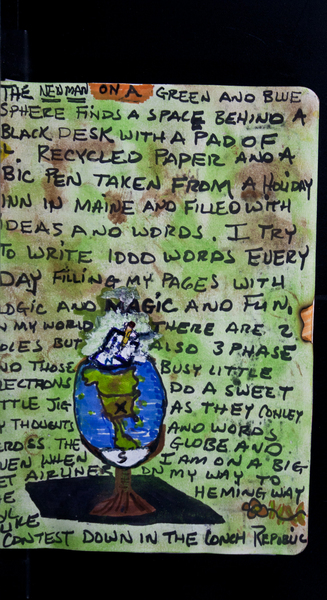 THE NEDMAN ON A GREEN AND BLUE
SPHERE FINDS A SPACE BEHIND A
BLACK DESK WITH A PAD OF
L. RECYCLED PAPER AND A
BIC PEN TAKEN FROM A HOLIDAY
INN IN MAINE AND FILLED WITH
IDEAS AND WORDS. I TRY
TO WRITE 1000 WORDS EVERY
DAY FILLING MY PAGES WITH
LOGIC AND MAGIC AND FUN,
N MY WORLD THERE ARE 2
OLES BUT ALSO 3 PHASE
ND THOSE BUSY LITTLE
ECTRONS DO A SWEET
TTLE JIG AS THEY CONVEY
Y THOUGHTS AND WORDS
CROSS THE GLOBE AND
VEN WHEN I AM ON A BIG
ET AIRLINER ON MY WAY TO
HEMINGWAY
LIKE
CONTEST DOWN IN THE CONCH REPUBLIC
X
S